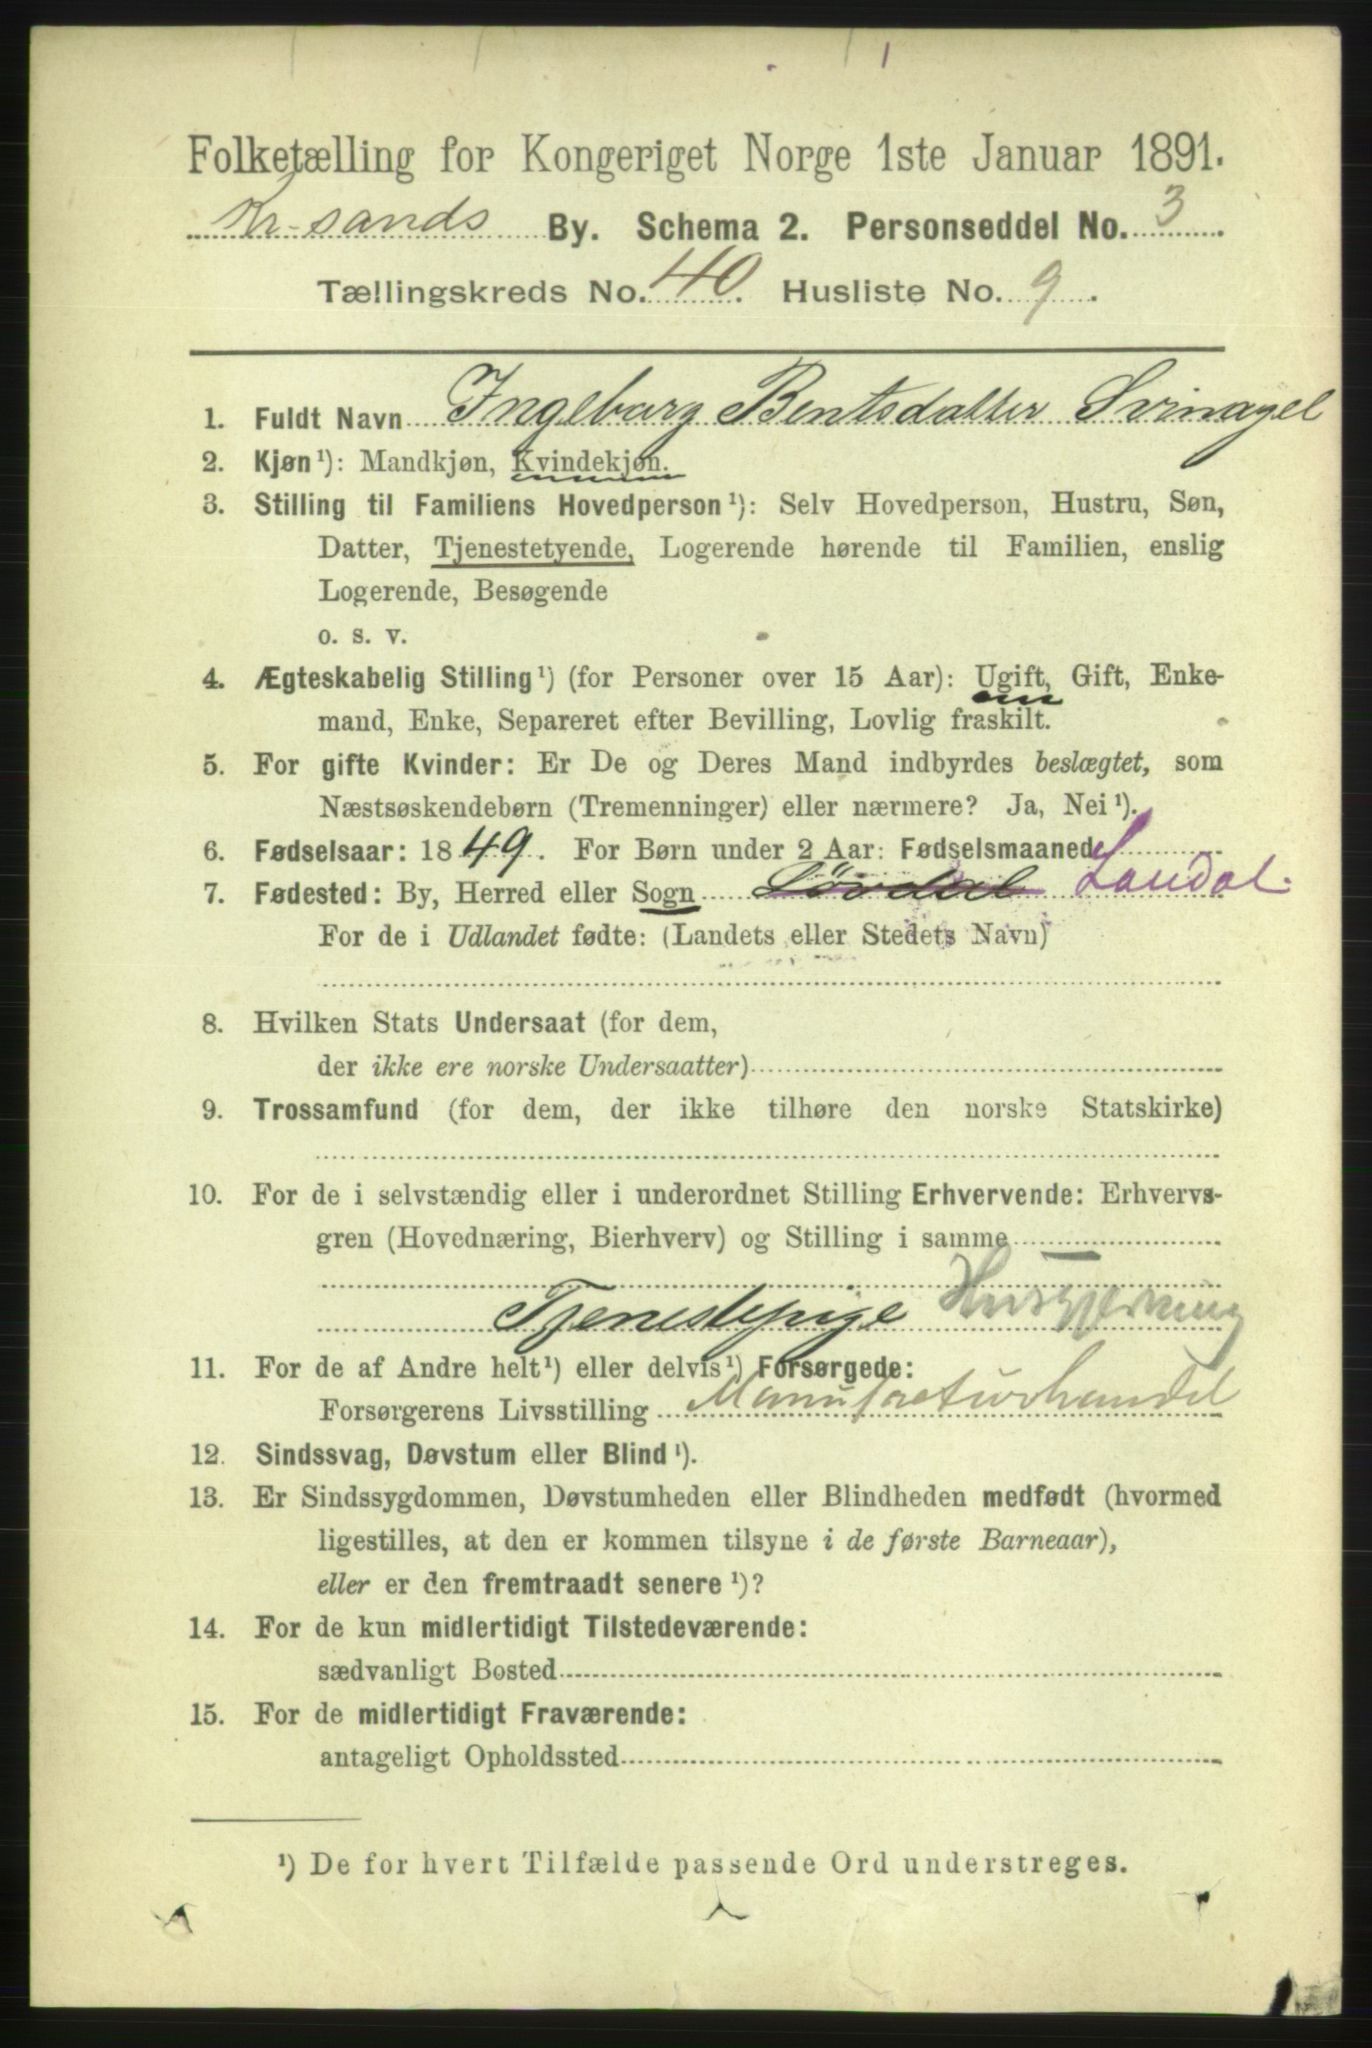 Folketælling for Kongeriget Norge 1ste Januar 1891.
Kr-sands By. Schema 2. Personseddel No. 3
Tællingskreds No. 40. Husliste No. 9.
1. Fuldt Navn Ingeborg Bentsdatter Svinagel
2. Kjøn¹): Mandkjøn, Kvindekjøn.
3. Stilling til Familiens Hovedperson¹): Selv Hovedperson, Hustru, Søn,
Datter, Tjenestetyende, Logerende hørende til Familien, enslig
Logerende, Besøgende
o. s. v.
4. Ægteskabelig Stilling¹) (for Personer over 15 Aar): Ugift, Gift, Enke-
mand, Enke, Separeret efter Bevilling, Lovlig fraskilt.
5. For gifte Kvinder: Er De og Deres Mand indbyrdes beslægtet, som
Næstsøskendebørn (Tremenninger) eller nærmere? Ja, Nei¹).
6. Fødselsaar: 1849. For Børn under 2 Aar: Fødselsmaaned
7. Fødested: By, Herred eller Sogn Løvdal Laudal.
For de i Udlandet fødte: (Landets eller Stedets Navn)
8. Hvilken Stats Undersaat (for dem,
der ikke ere norske Undersaatter)
9. Trossamfund (for dem, der ikke tilhøre den norske Statskirke)
10. For de i selvstændig eller i underordnet Stilling Erhvervende: Erhvervs-
gren (Hovednæring, Bierhverv) og Stilling i samme
Tjenestepige Husgjerning
11. For de af Andre helt¹) eller delvis¹) Forsørgede:
Forsørgerens Livsstilling Manufacturhandel
12. Sindssvag, Døvstum eller Blind¹).
13. Er Sindssygdommen, Døvstumheden eller Blindheden medfødt (hvormed
ligestilles, at den er kommen tilsyne i de første Barneaar),
eller er den fremtraadt senere¹)?
14. For de kun midlertidigt Tilstedeværende:
sædvanligt Bosted
15. For de midlertidigt Fraværende:
antageligt Opholdssted
¹) De for hvert Tilfælde passende Ord understreges.